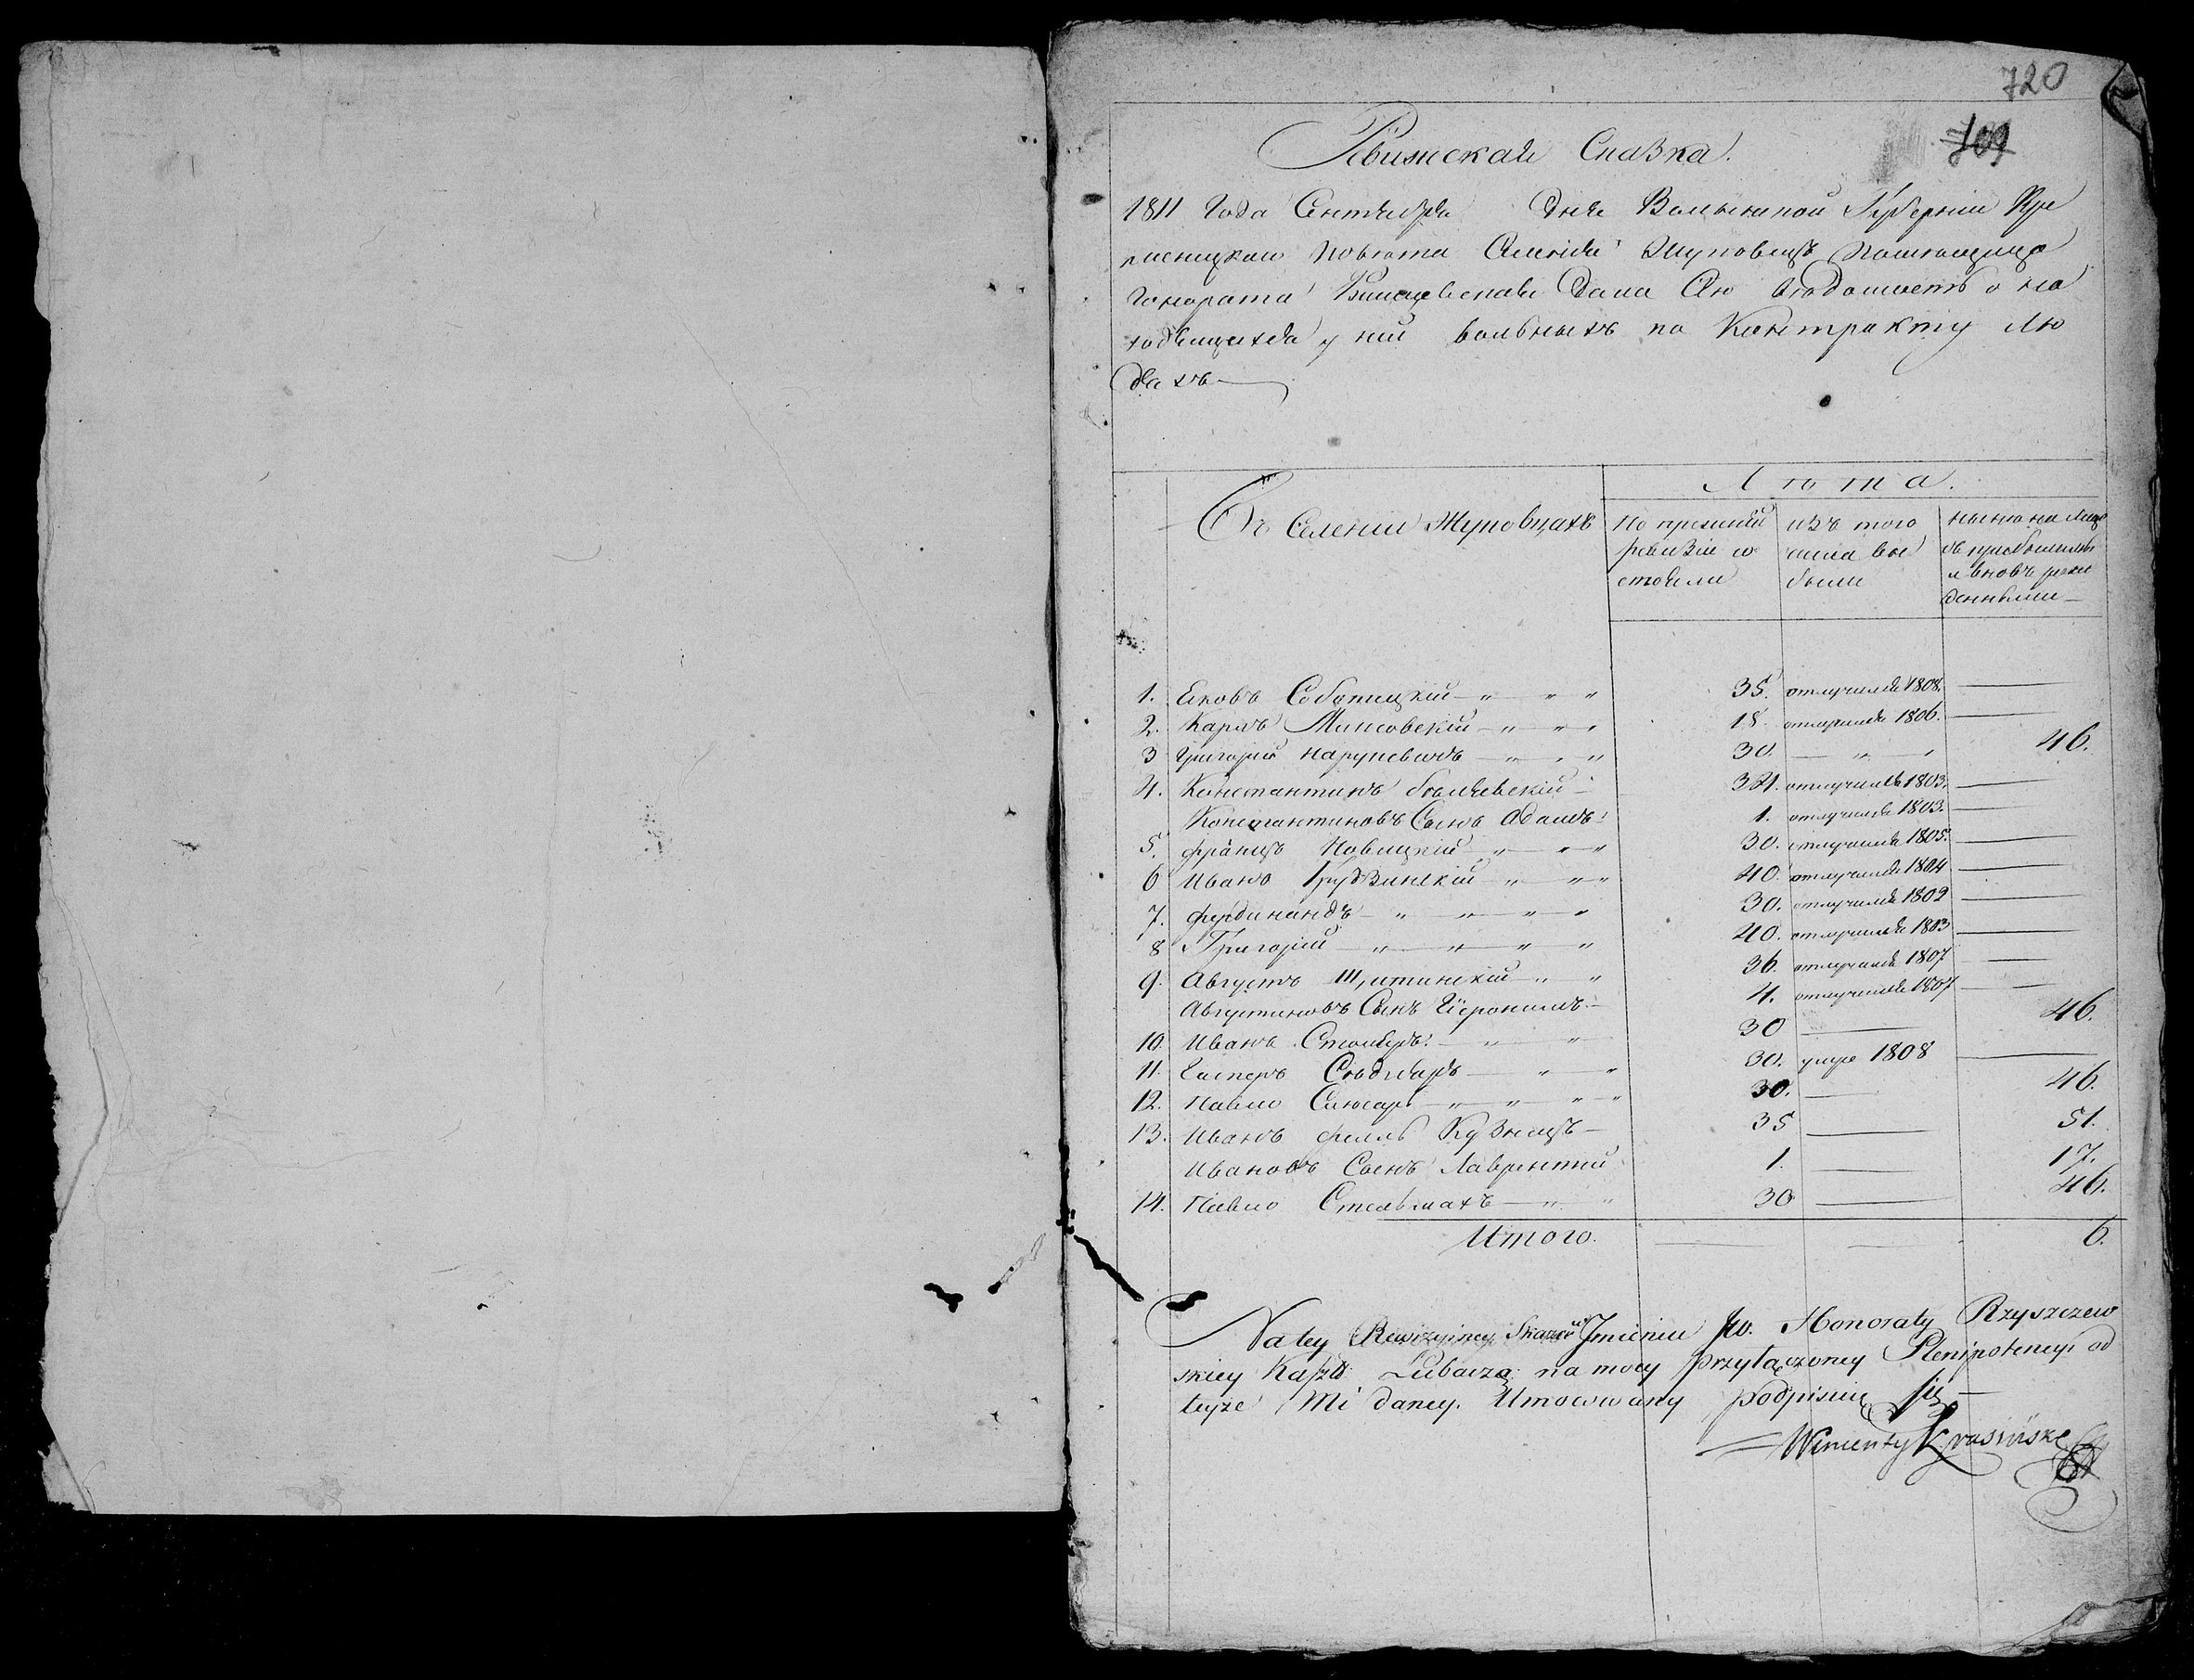 720
709
Ревижская Сказка.
1811 Года Сентября Дня Волынской Губернии Кре
менецкаго повѣта Селенія Жуповецъ помѣщица
Гонората Ржищевская Дана Сю вѣдомость о на
ходящихся у ней вольныхъ по Контракту лю
дяхъ
Въ Селении Жуповцахъ
Лѣта.
По прежней ревизіи со
стояли
изъ того
числа вы
были
ныне на лицо
съ прибылыми
и вновь рож
денными
1. Яковъ Соботицкій 35. отлучился 1808.
2. Карлъ 18. отлучился 1806.
3 Григорий Нарушевичъ 30. 46.
4. Константинъ 34. отлучился 1803.
Константиновъ Сынъ Адамъ 1. отлучился 1803.
5. Францъ Новицкій 30. отлучился 1805.
6 Иванъ Грудзинскій 40. отлучился 1804
7. Фердинандъ 30. отлучился 1802
8 Григорій 40. отлучился 1803
9. Августъ 36. отлучился 1807
Августиновъ Сынъ Іеронимъ 4. отлучился 1807
10. Иванъ Столяръ 30 46.
11. Гаспаръ 30. умре 1808
12. Павло Слюсаръ 30. 46.
13. Иванъ Кузнецъ 35 51.
Ивановъ Сынъ Лаврентий 1. 17.
14. Павло Стельмахъ 30 46.
Итого. 6.
Na tey Rewizyiney Skazce w Jmieniu Jw. Honoraty Rzyszczew
skiey Kaszt: Lubacza: na mocy przyłączoney Plenipotencyi od
teyże Mi daney. Umocowany podpisuię się
Wincenty Krasiński